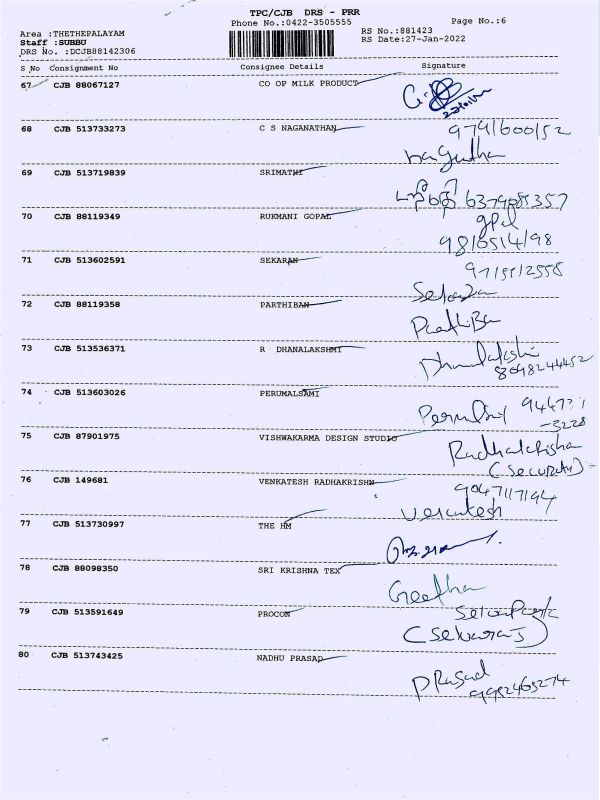 TPC/CJB DRS - PRR
Phone No.:0422-3505555
Page No.:6
Area :THETHEPALAYAM
RS No.:881423
Staff :SUBBU
RS Date:27-Jan-2022
DRS No. :DCJB88142306
S No Consignment No Consignee Details Signature
67 CJB 88067127 CO OP MILK PRODUCT
68 CJB 513733273 C S NAGANATHAN 9791600152
69 CJB 513719839 SRIMATHI
6379081357
70 CJB 88119349 RUKMANI GOPAL gpal
9816514198
71 CJB 513602591 SEKARAN
Sekaran
72 CJB 88119358 PARTHIBAN
73 CJB 513536371 R DHANALAKSHMI Dhanalakshi
8098244452
74 CJB 513603026 PERUMALSAMI
75 CJB 87901975 VISHWAKARMA DESIGN STUDIO Radhakrisha
(Security)
76 CJB 149681 VENKATESH RADHAKRISHN 9047117194
Venkatesh
77 CJB 513730997 THE HM
78 CJB 88098350 SRI KRISHNA TEX Geetha
79 CJB 513591649 PROCON
(Sekaraj)
80 CJB 513743425 NADHU PRASAD PRasad
9952465274